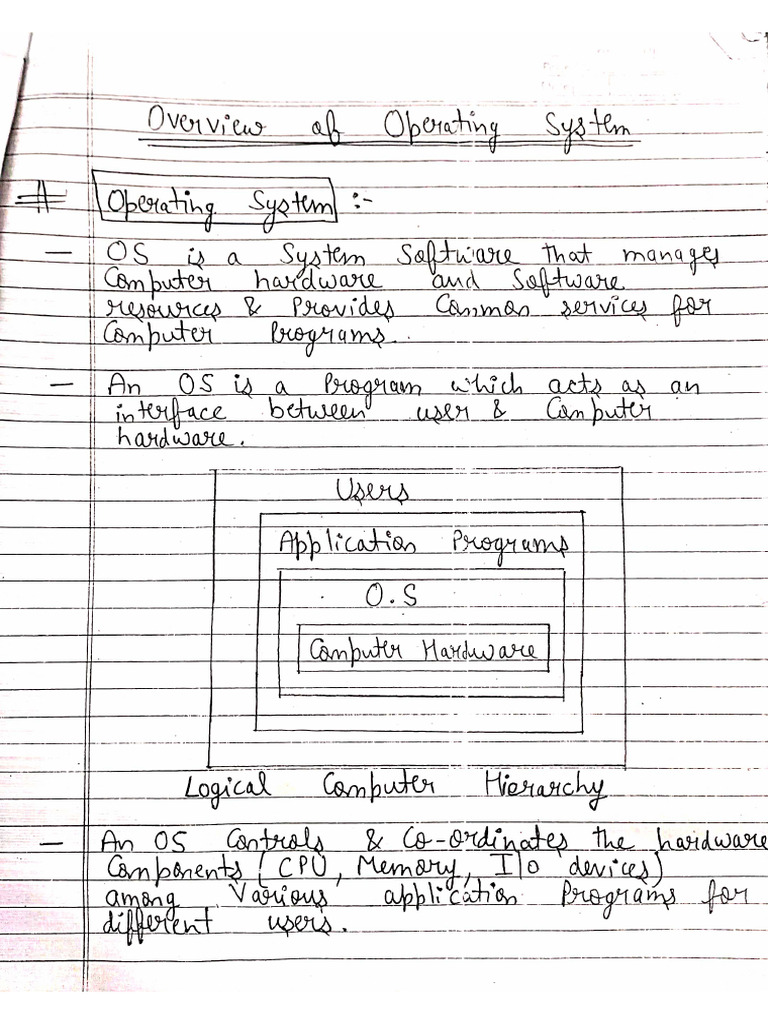 Overview of Operating System
# Operating System :-
— OS is a System Software that manages
Computer hardware and Software
resources & Provides Common services for
Computer Programs.
— An OS is a Program which acts as an
interface between user & Computer
hardware.
Users
Application Programs
O.S
Computer Hardware
Logical Computer Hierarchy
— An OS Controls & Co-ordinates the hardware
Components (CPU, Memory, I/O devices)
among Various application Programs for
different users.